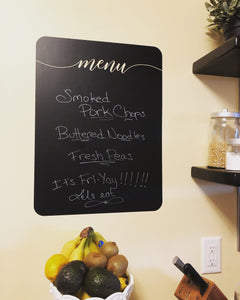 menu
Smoked
Pork Chops
Buttered Noodles
Fresh Peas
It's Fri-Yay!!!!!!
Let's eat